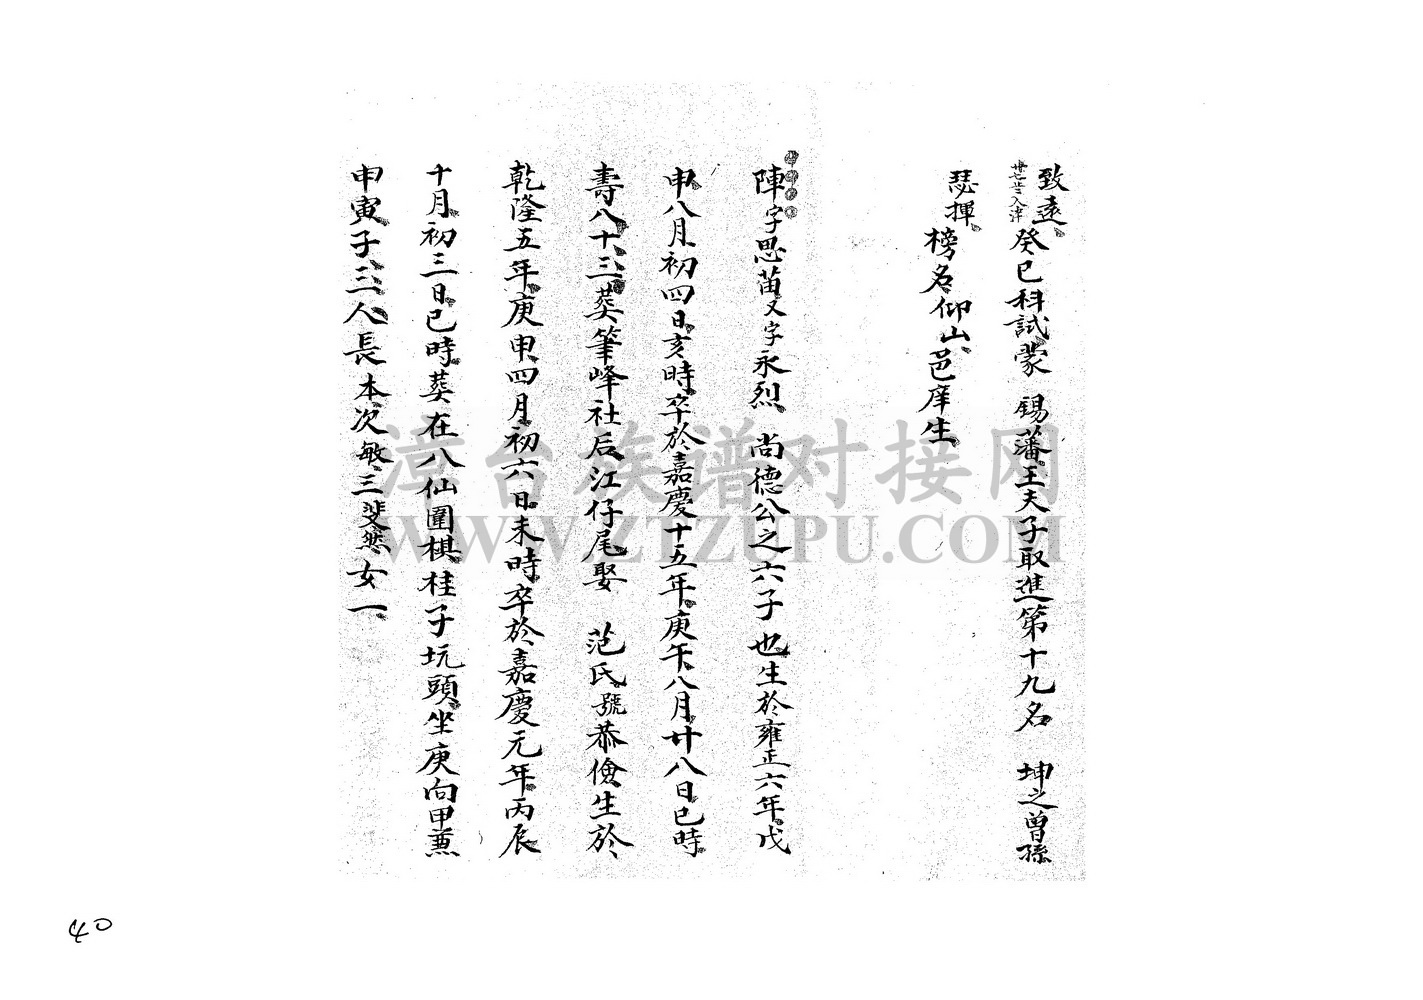 致遠癸巳科試蒙 錫藩王夫子取進第十九名 坤之曾孫
入泮
瑟揮榜名仰山邑庠生
陣字思苗又字永烈 尚德公之六子也生於雍正六年戊
申八月初四日亥時卒於嘉慶十五年庚午八月廿八日巳時
壽八十三葬筆峰社后江仔尾娶 范氏號恭儉生於
乾隆五年庚申四月初六日未時卒於嘉慶元年丙辰
十月初三日巳時葬在八仙圍棋桂子坑頭坐庚向甲兼
申寅子三人長本次敏三斐然女一
漳台族谱对接网
WWW.ZTZUPU.COM
40